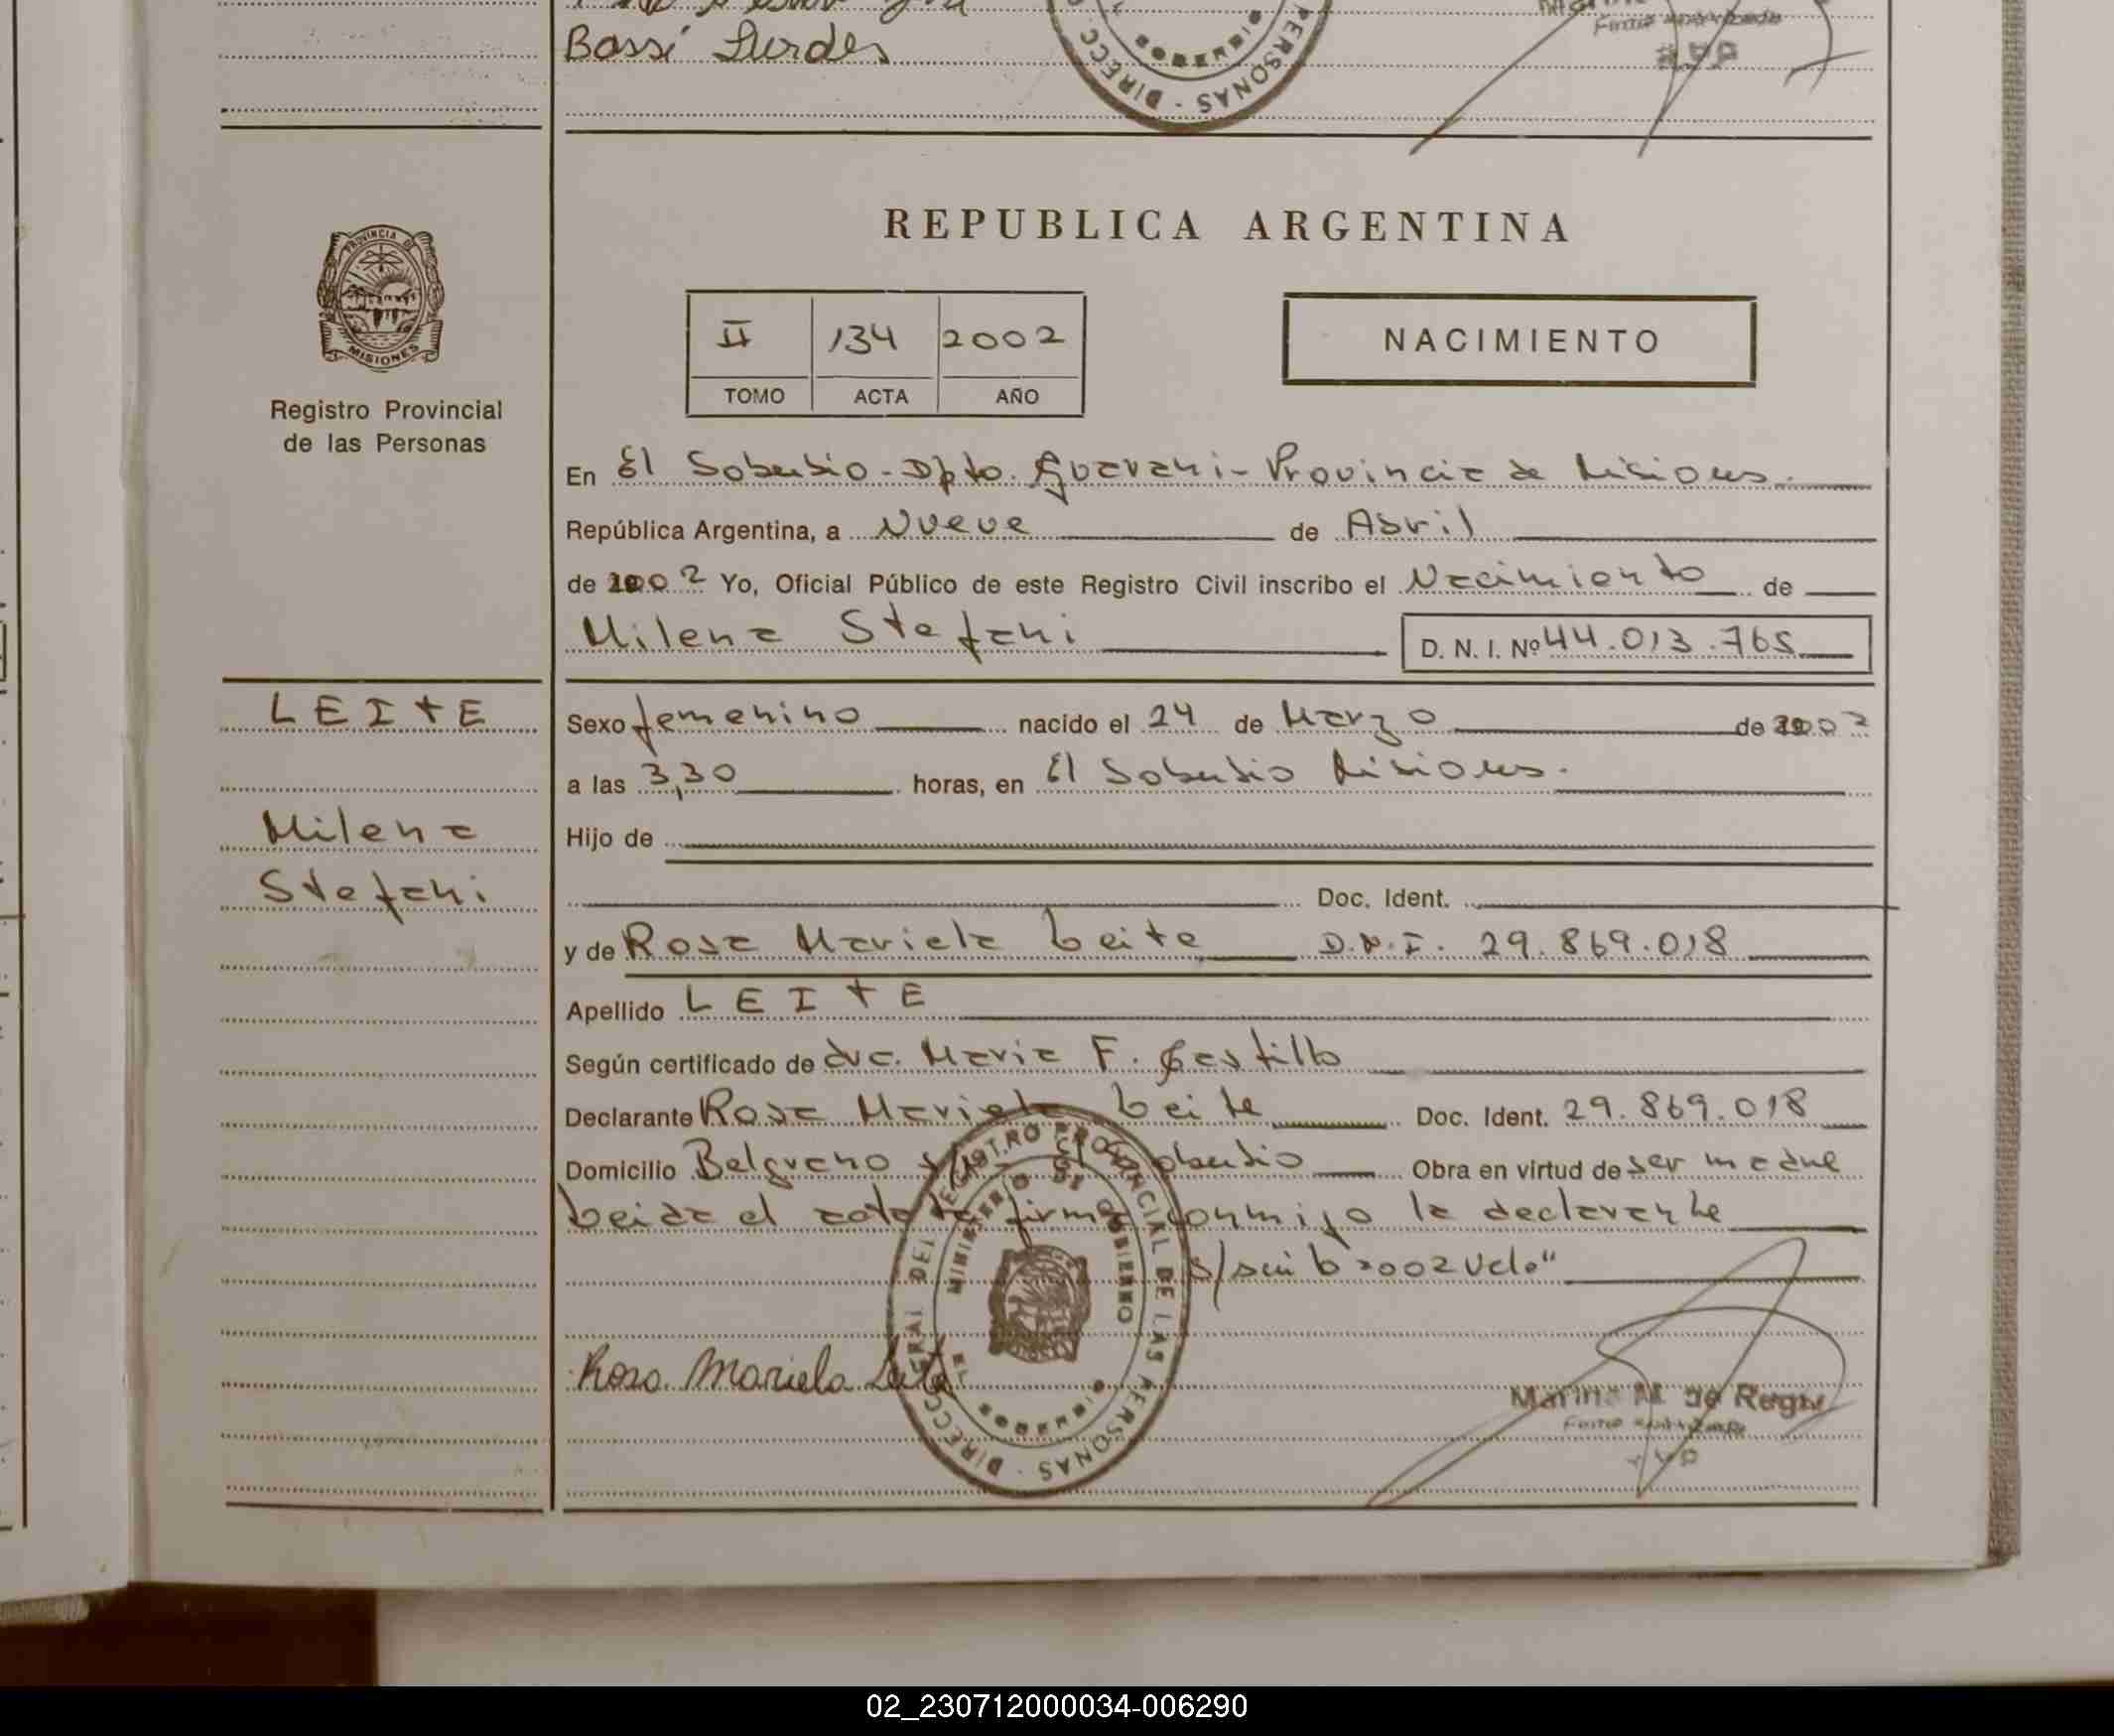 Bassi Lurdes
REPUBLICA ARGENTINA
PROVINCIA DE
MISIONES
Registro Provincial
de las Personas
II 134 2002
TOMO ACTA AÑO
NACIMIENTO
En El Soberbio - Dpto. Guarani - Provincia de Misiones.
República Argentina, a Nueve de Abril
de 2002 Yo, Oficial Público de este Registro Civil inscribo el Nacimiento de
Milena Stefani D. N. I. Nº 44.013.765
LEITE
Sexo femenino nacido el 24 de Marzo de 2002
a las 3,30 horas, en El Soberbio Misiones.
Milena
Stefani
Hijo de
Doc. Ident.
y de Rosa Mariela Leite D.N.I. 29.869.018
Apellido LEITE
Según certificado de dra. Maria F. Castillo
Declarante Rosa Mariela Leite Doc. Ident. 29.869.018
Domicilio Belgrano s/n El Soberbio Obra en virtud de ser madre
Leida el acta la firma conmigo la declarante
2002 Vale"
Rosa Mariela Leite
DIRECC. GRAL DEL REGISTRO PROVINCIAL DE LAS PERSONAS
MINISTERIO DE GOBIERNO
EL SOBERBIO
Marina M. de Regny
02_230712000034-006290